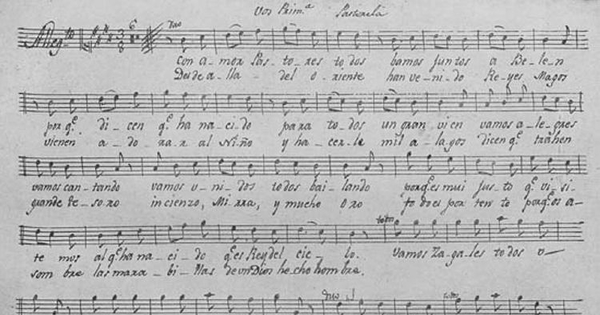 Vos Prim.ª Pastorela
Allegtto Duo
con amor Pas-to-res to dos bamos juntos a Be-len
Desde a-lla- del o-riente han ve-ni-do Re-yes Magos
porq.e di-cen q.e ha na-ci-do para to-dos un gran vien vamos a-le-gres
vienen a-do-rar al Niño y ha-cer-le mil a-lagos dicen q.e trahen
vamos can-tando vamos u-ni-dos todos bai-lando porq.es mui jus-to q.e vi-si-
grande te-so ro incienzo, Mirra, y mucho oro to do el por ten to porq.es a-
toto
te mos al q.e ha na-ci-do q.es Rey del cie-lo. Vamos Zaga-les todos u-
som bro las mara-bi-llas de un Dios he-cho hombre.
Duo toto